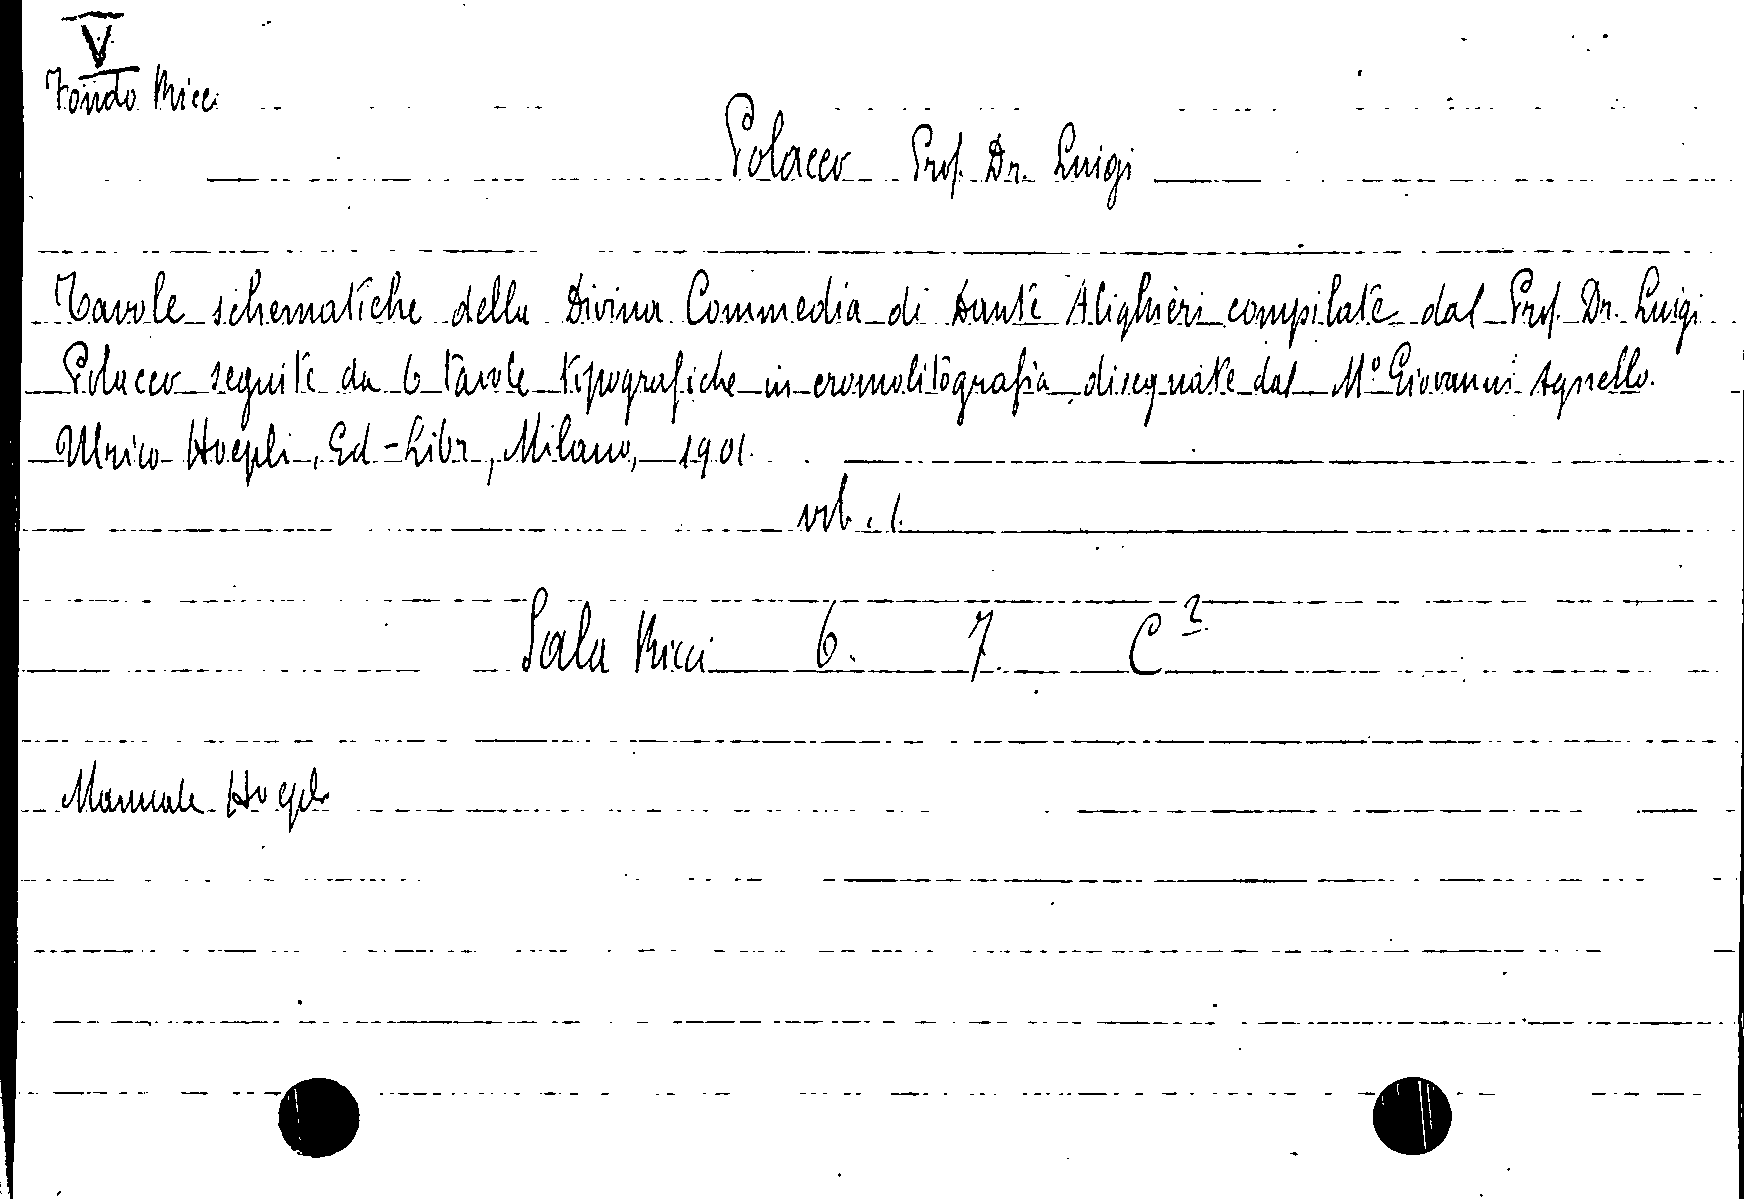 V
Fondo Ricci
Polacco Prof. Dr. Luigi
Tavole schematiche della Divina Commedia di Dante Alighieri compilate dal Prof. Dr. Luigi
Polacco seguite da 6 tavole topografiche in cromolitografia disegnate dal M° Giovanni Agnello.
Ulrico Hoepli, Ed-Libr, Milano, 1901.
vol. 1.
Sala Ricci 6. 7. C²
Manuale Hoepli